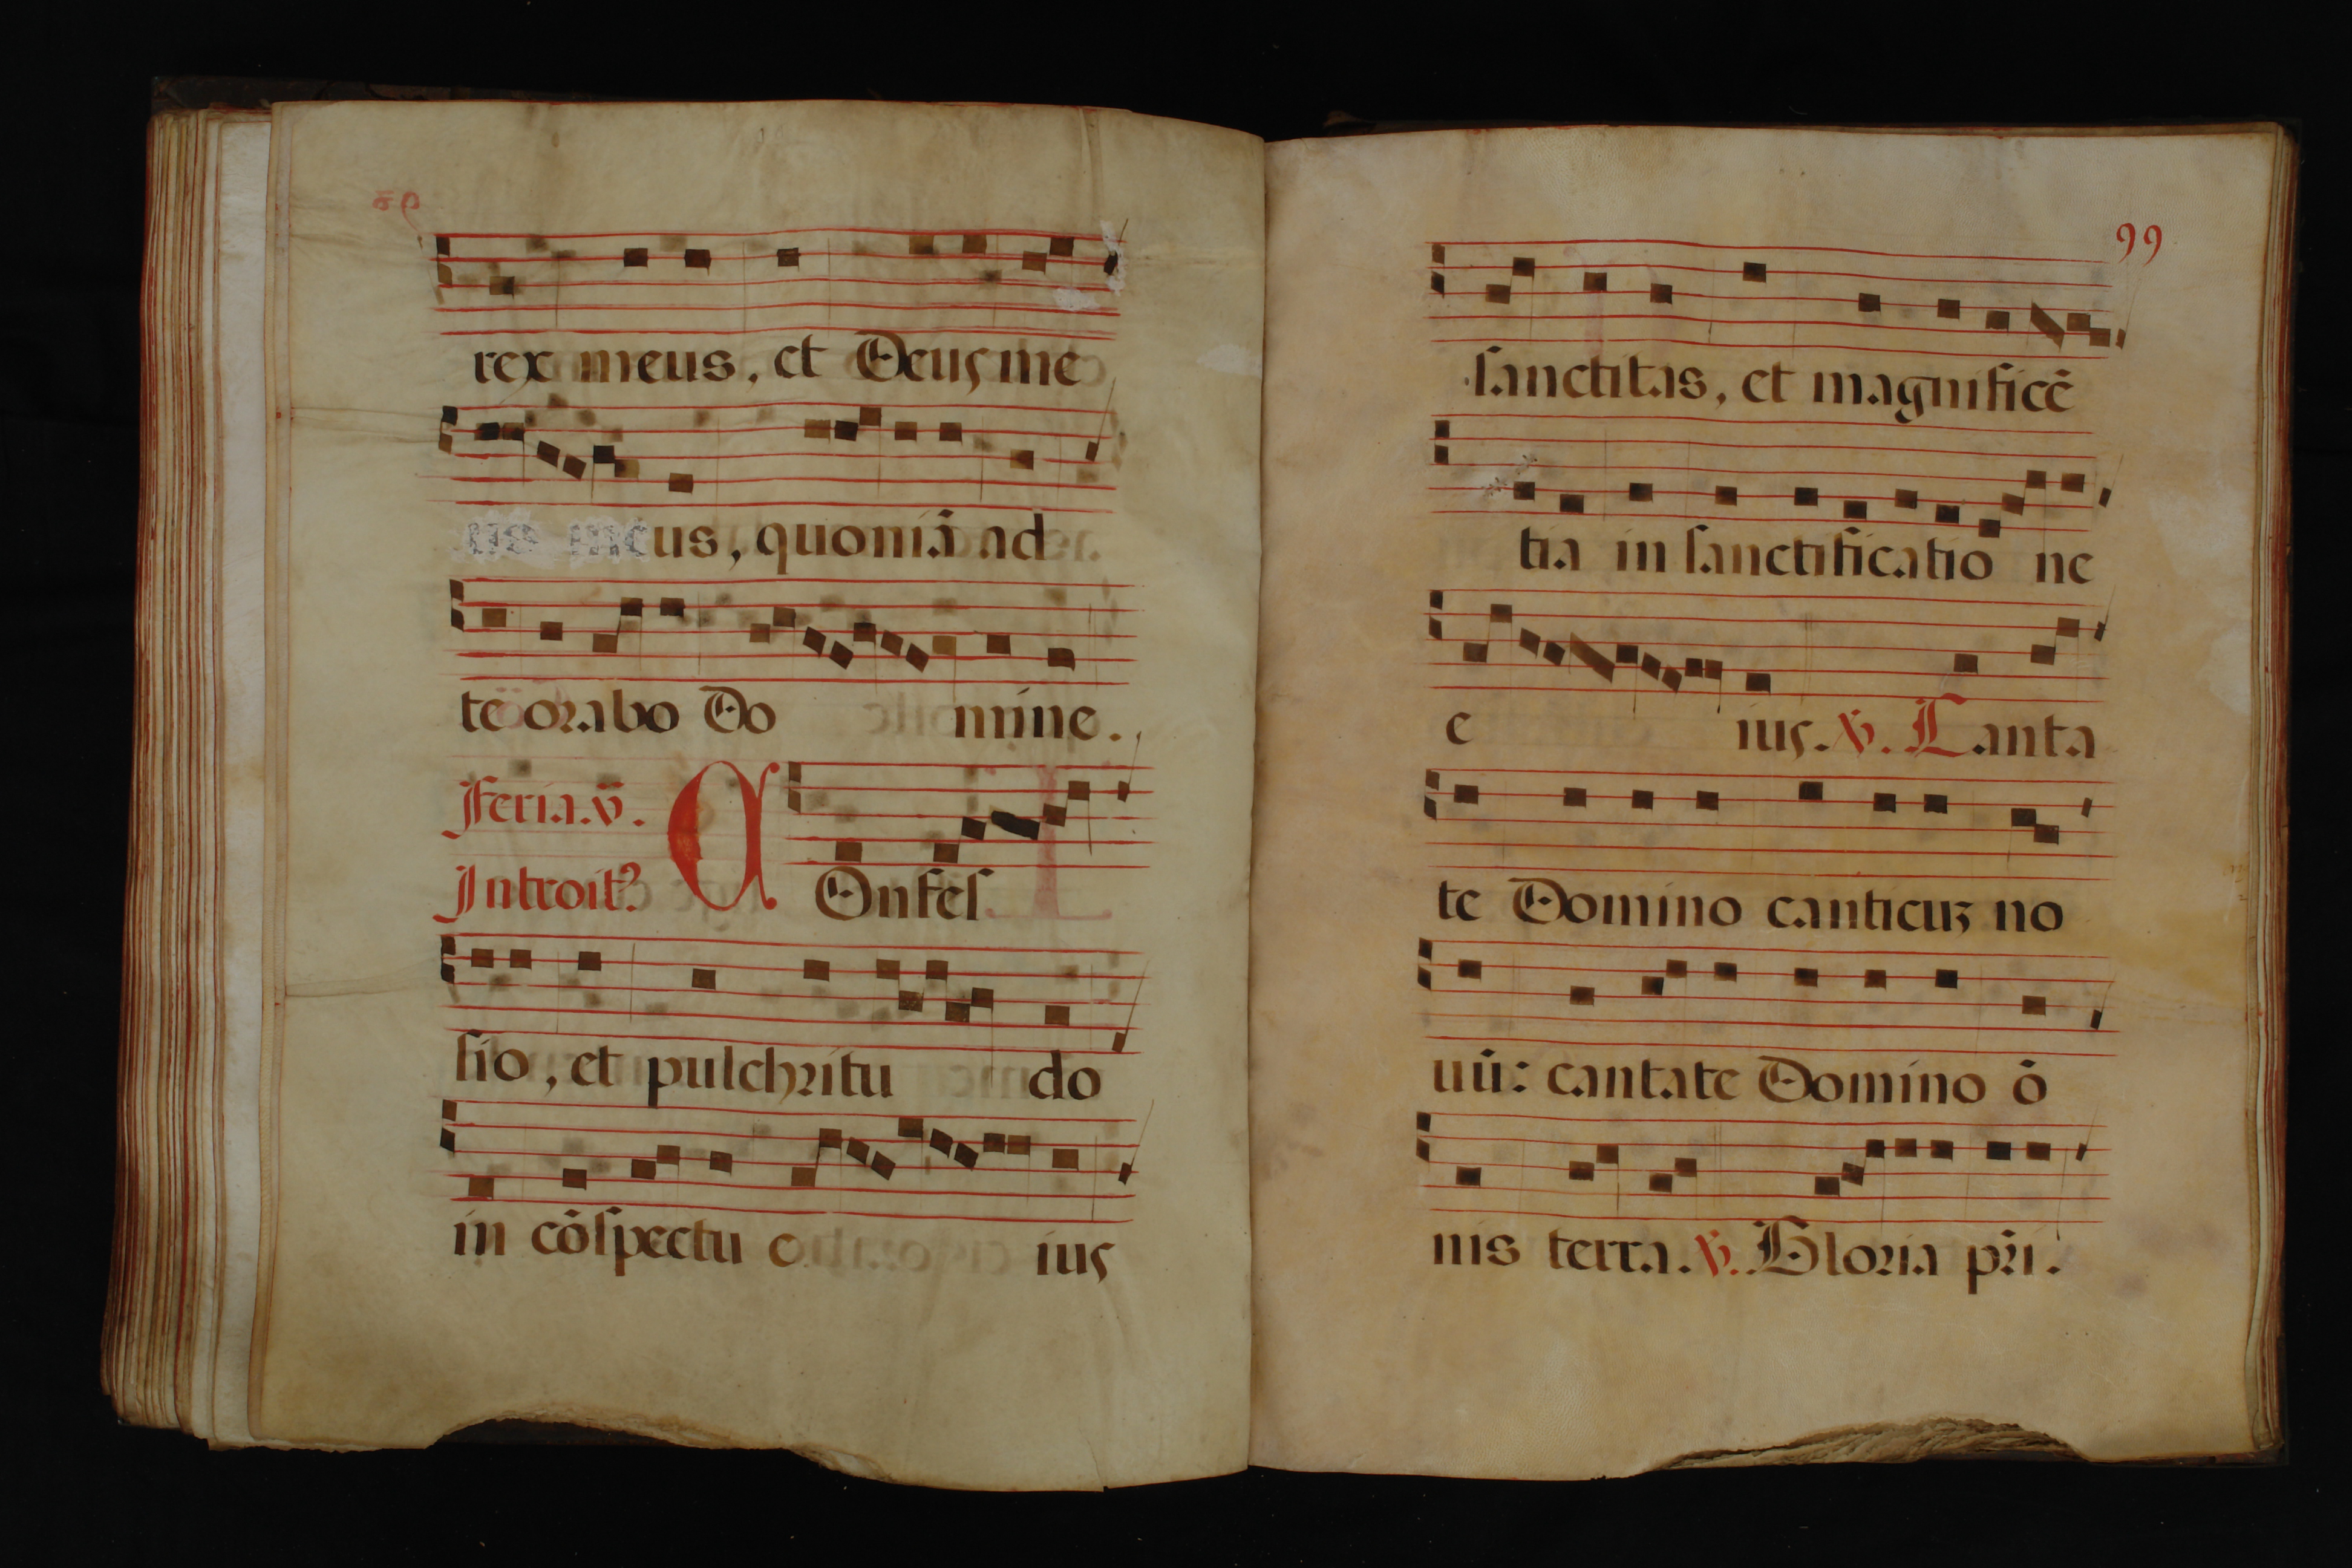 rex meus, et Deus me
us, quoniã ad
te orabo Do mine.
Feria.v̄.
Introitꝰ. C Onfes
sio, et pulchritu do
in cõspectu e ius
99
sanctitas, et magnificẽ
tia in sanctificatio ne
e ius. ℣. Canta
te Domino canticuꝫ no
uũ: cantate Domino õ
nis terra. ℣. Gloria pr̃i.